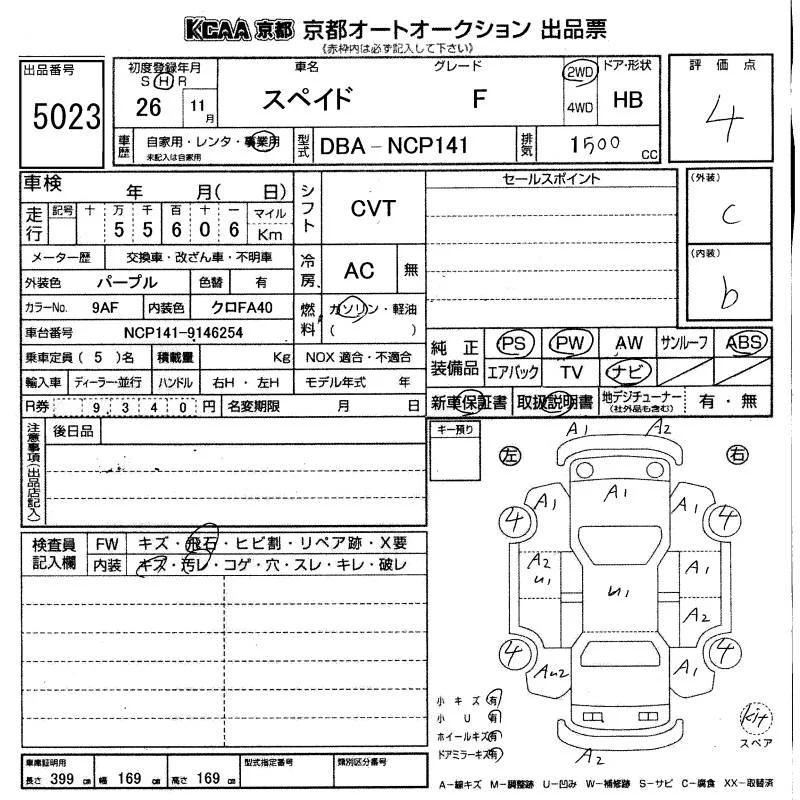 KCAA 京都 京都オートオークション 出品票
《赤枠内は必ず記入して下さい》
出品番号
5023
初度登録年月
S H R
26 11月
車名
スペイド
グレード
F
2WD
4WD
ドア・形状
HB
評価点
4
車歴
自家用・レンタ・事業用
未記入は自家用
型式
DBA-NCP141
排気
1500 CC
(外装)
c
(内装)
b
車検 年 月( 日)
走行
記号 十 万 千 百 十 一 マイル
5 5 6 0 6 Km
シフト
CVT
セールスポイント
メーター歴 交換車・改ざん車・不明車
冷房
AC 無
外装色 パープル 色替 有
カラーNo. 9AF 内装色 クロFA40
燃料
ガソリン・軽油
( )
車台番号 NCP141-9146254
乗車定員 ( 5 )名 積載量 Kg NOX 適合・不適合
輸入車 ディーラー・並行 ハンドル 右H・左H モデル年式 年
R券 9 3 4 0 円 名変期限 月 日
純正装備品
PS PW AW サンルーフ ABS
エアバック TV ナビ
新車保証書 取扱説明書 地デジチューナー(社外品も含む) 有・無
注意事項(出品店記入)
後日品
キー預り
左 右
A1 A2
A1 A1 A1
4 4
A2 U1 U1 A1
A2
4 4
AU2 A1
A2
検査員記入欄
FW キズ・飛石・ヒビ割・リペア跡・X要
内装 キズ・汚レ・コゲ・穴・スレ・キレ・破レ
小キズ 有
小 U 有
ホイールキズ 有
ドアミラーキズ 有
スペア
車庫証明用
長さ 399 cm 幅 169 cm 高さ 169 cm
型式指定番号
類別区分番号
A-線キズ M-調整跡 U-凹み W-補修跡 S-サビ C-腐食 XX-取替済